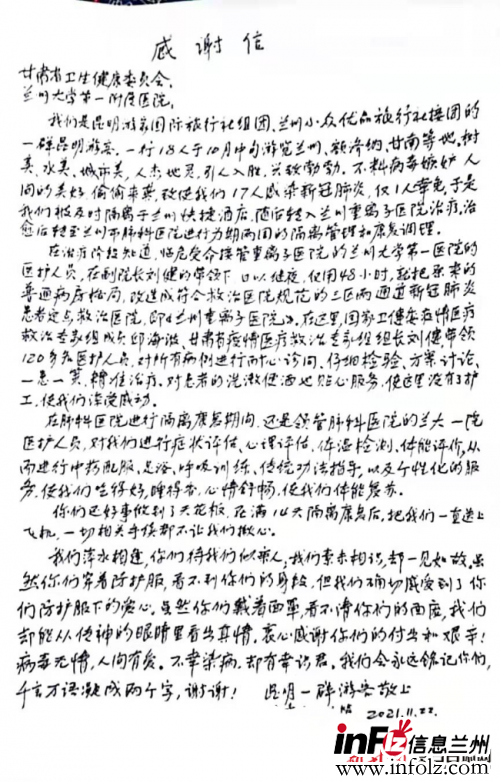 感谢信
甘肃省卫生健康委员会、
兰州大学第一附属医院,
我们是昆明游客国际旅行社组团、兰州小众优品旅行社接团的
一群昆明游客。一行18人于10月中旬游览兰州、额济纳、甘南等地。树
美、水美、城市美,人杰地灵,引人入胜,兴致勃勃。不料病毒嫉妒人
间的美好,偷偷来袭,致使我们17人感染新冠肺炎,仅1人幸免,于是
我们被及时隔离于兰州快捷酒店,随后转入兰州重离子医院治疗,治
愈后转至兰州市肺科医院进行为期两周的隔离管理和康复调理。
在治疗阶段知道,临危受命接管重离子医院的兰州大学第一医院的
医护人员,在副院长刘健的带领下,日以继夜,仅用48小时,就把原来的
普通病房格局,改造成符合救治医院规范的三区两通道新冠肺炎
患者定点救治医院,即《兰州重离子医院》。在这里,国家卫健委疫情医疗
救治专家组成员邱海波、甘肃省疫情医疗救治专家组组长刘健带领
120多名医护人员,对所有病例进行耐心诊问、仔细检验、方案讨论、
一患一策、精准治疗。对患者的洗漱便洒也贴心服务,使这里没有护
工,使我们深受感动。
在肺科医院进行隔离康复期间,还是领管肺科医院的兰大一院
医护人员,对我们进行症状评估、心理评估、体温检测、体能评价,从
而进行中药配服、足浴、呼吸训练、传统功法指导,以及个性化的服
务,使我们吃得好,睡得香,心情舒畅,使我们体能复苏。
你们还好事做到了天花板,在满14天隔离康复后,把我们一直送上
飞机,一切相关手续都不让我们揪心。
我们萍水相逢,你们待我们似亲人,我们素未相识,却一见如故。虽
然你们穿着防护服,看不到你们的身段,但我们确切感受到了你
们防护服下的爱心。虽然你们戴着面罩,看不清你们的面庞,我们
却能从传神的眼睛里看出真情,衷心感谢你们的付出和艰辛!
病毒无情,人间有爱。不幸染病,却有幸识君。我们会永远铭记你们,
千言万语凝成两个字,谢谢! 昆明一群游客敬上
2021.11.22.
infLZ信息兰州
www.infolz.com